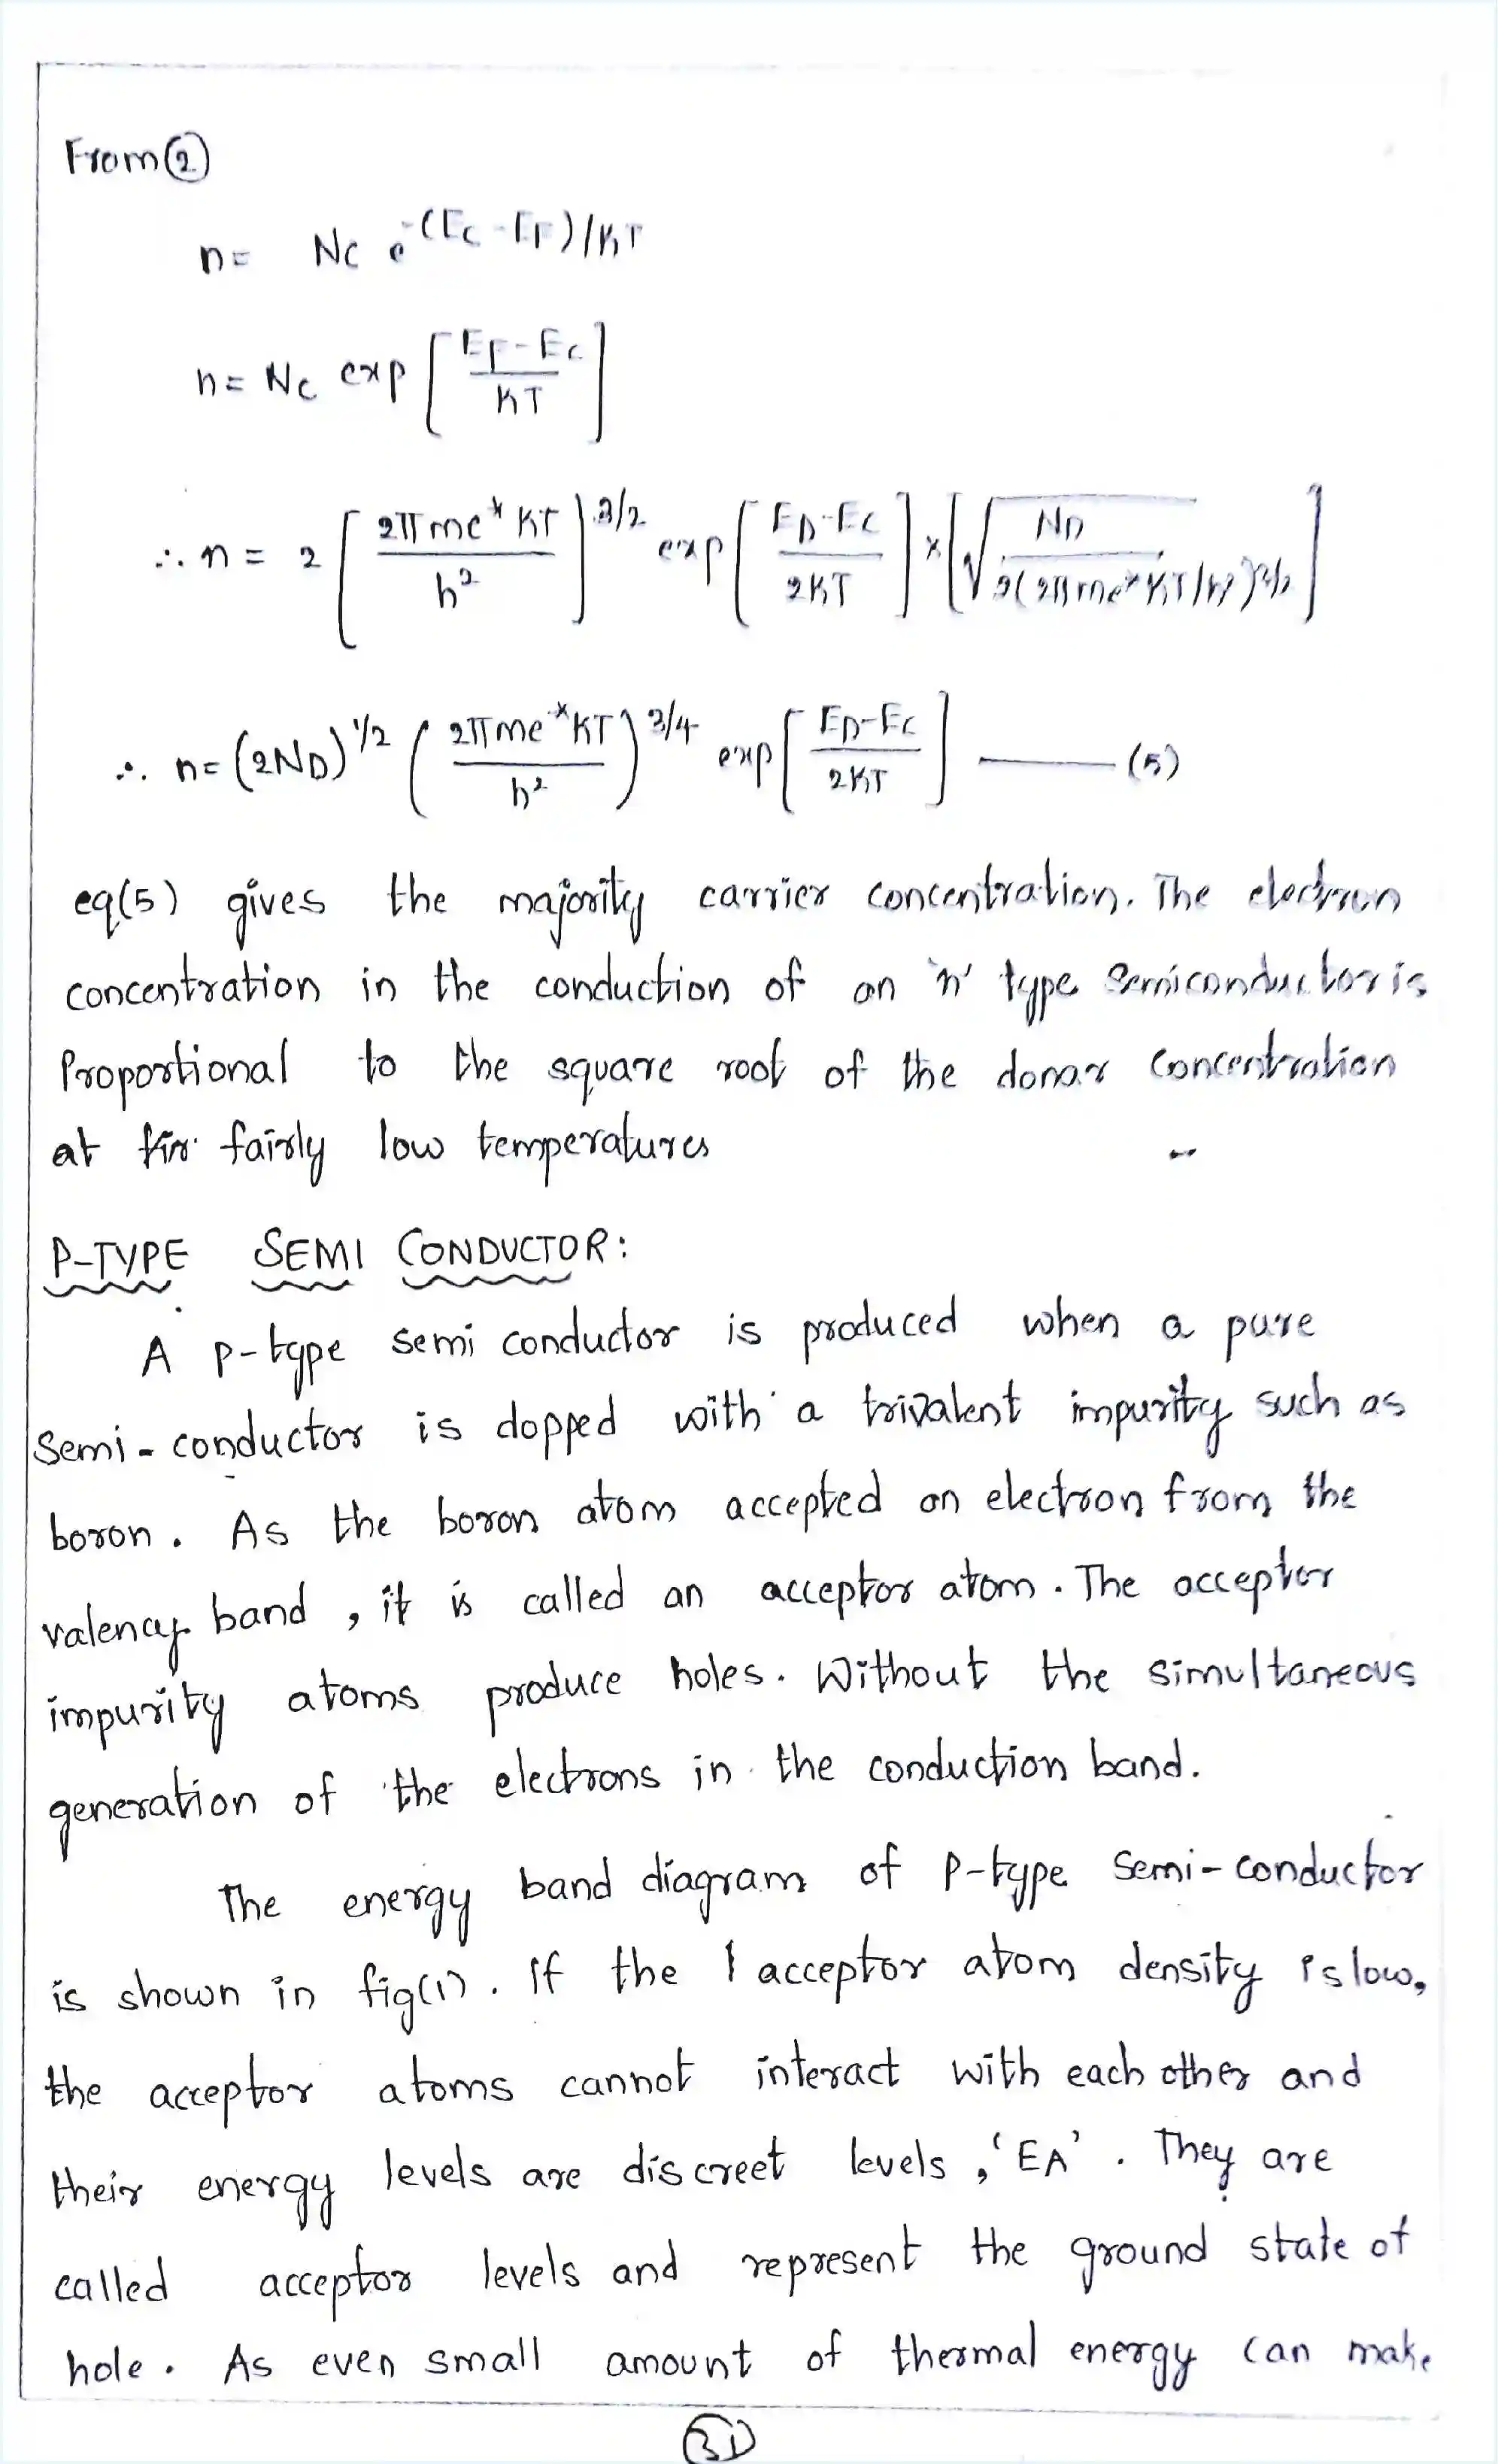 From ②
n = Nc e^-(Ec-EF)/KT
n = Nc exp [ (EF-Ec)/KT ]
∴ n = 2 [ 2πme* KT / h² ]^3/2 exp [ (ED-Ec)/2KT ] × [ √( ND / 2(2πme* KT/h²)^3/2 ) ]
∴ n = (2ND)^1/2 ( 2πme*KT / h² )^3/4 exp [ (ED-Ec)/2KT ] —— (5)
eq(5) gives the majority carrier concentration. The electron
concentration in the conduction of an 'n' type semiconductor is
Proportional to the square root of the donar concentration
at fairly low temperatures
P-TYPE SEMI CONDUCTOR:
A p-type semi conductor is produced when a pure
Semi-conductor is dopped with a trivalent impurity such as
boron. As the boron atom accepted an electron from the
valency band, it is called an acceptor atom. The acceptor
impurity atoms produce holes. Without the simultaneous
generation of the electrons in the conduction band.
The energy band diagram of P-type Semi-conductor
is shown in fig(1). If the acceptor atom density is low,
the acceptor atoms cannot interact with each other and
their energy levels are discreet levels, 'EA'. They are
called acceptor levels and represent the ground state of
hole. As even small amount of thermal energy can make
31